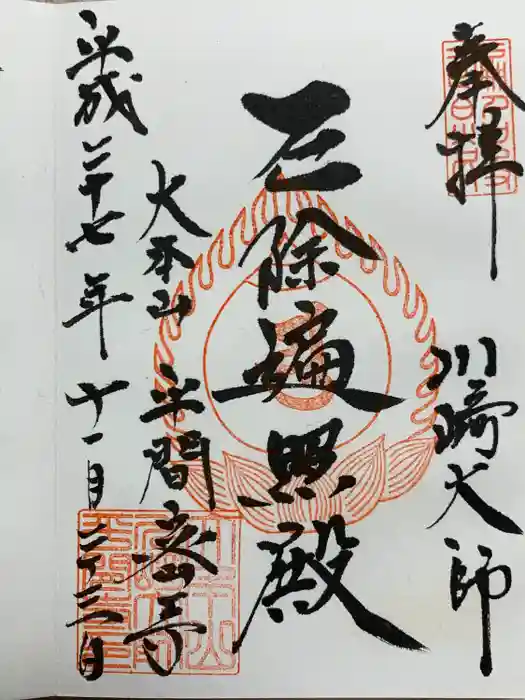 奉拝
川崎大師
厄除遍照殿
大本山
平間寺
平成二十七年十一月二十三日